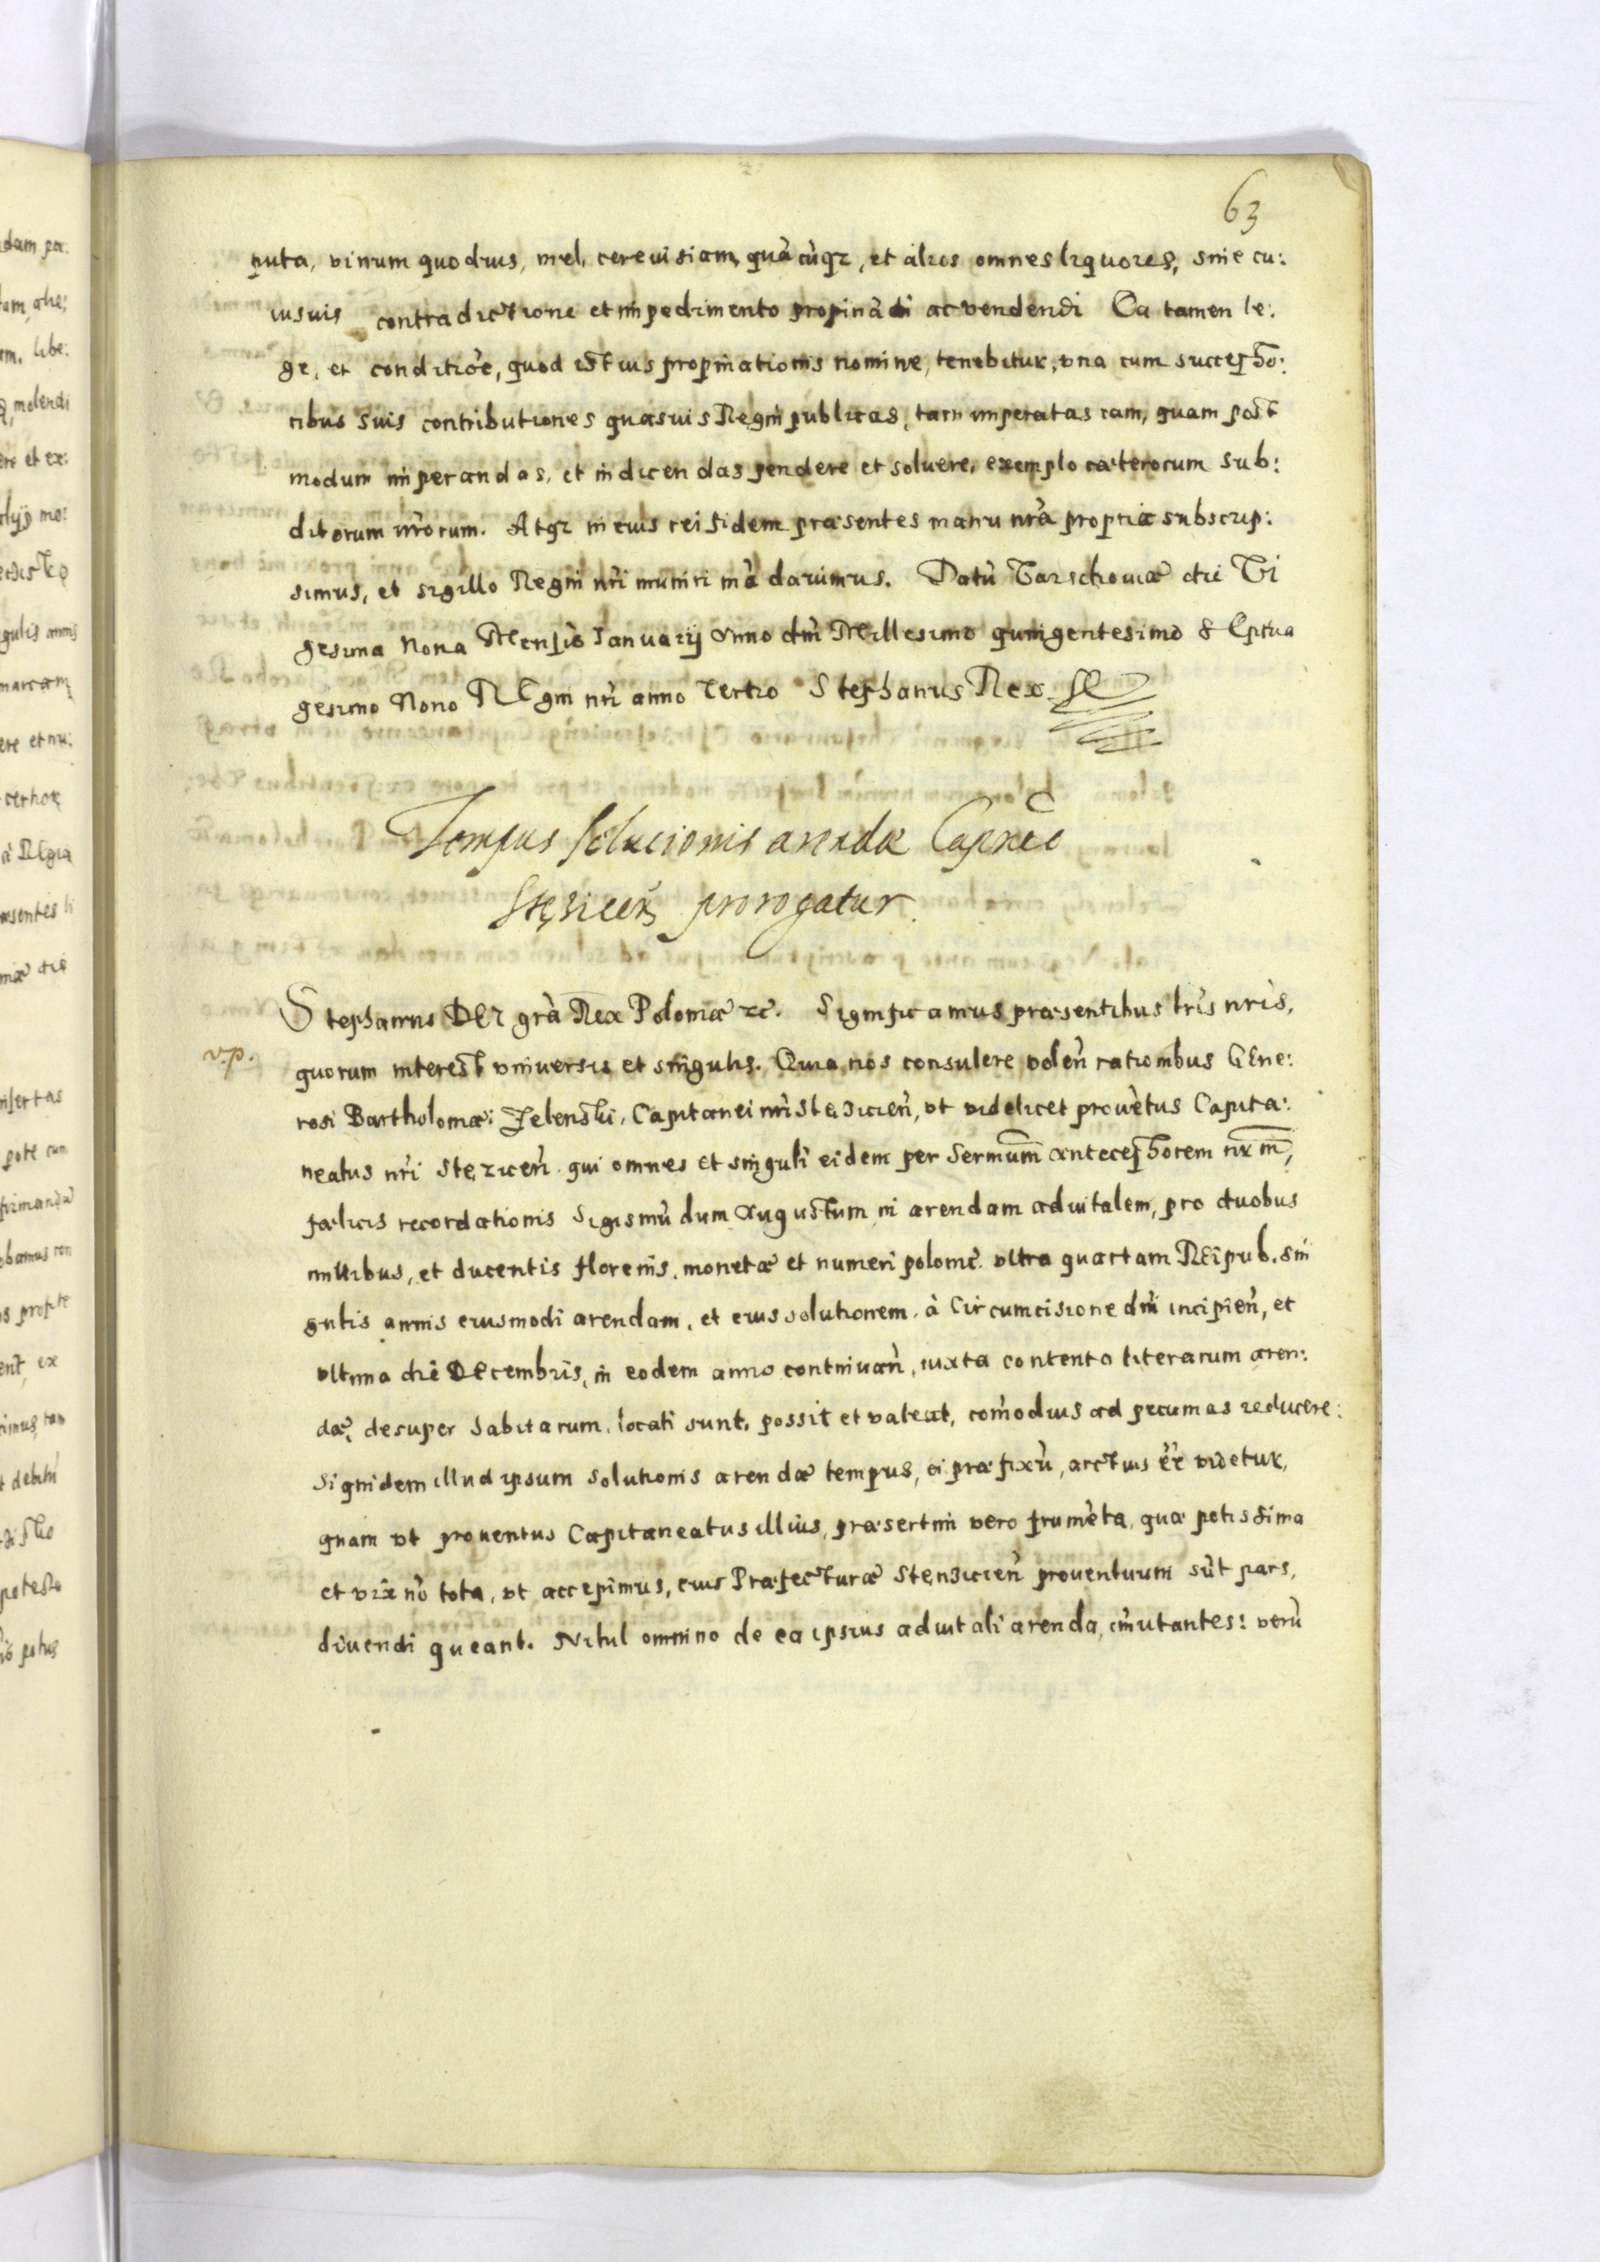 63
puta, vinum quoduis, mel, cereuisiam, quàcùqz, et alios omnes liquores, sine cu:
iusuis contradictione et impedimento propinàdi ac vendendi Ea tamen le:
ge, et conditiõe, quod istius propinationis nomine, tenebitur, vna cum successo:
ribus suis contributiones quasuis Regni publicas, tam imperatas iam, quam post
modum imperandas, et indicendas pendere et soluere, exemplo cæterorum sub:
ditorum nrorum. Atqz in eius rei fidem præsentes manu nrà propria subscrip:
simus, et sigillo Regni nri muniri màdauimus. Datù Varschouiæ die Vi
gesima Nona Mensis Ianuarij Anno dni Millesimo quingentesimo Septua
gesimo Nono REgni nri anno Tertio Stephanus Rex
Tempus solucionis arendæ Capnei
Stęzicen prorogatur
Stephanus DEI grà Rex Poloniæ zc. Significamus præsentibus lris nris,
v.p.
quorum interest vniuersis et singulis. Quia nos consulere volen rationibus GEne:
rosi Bartholomæi Zelenski, Capitanei nri Stęzicien, vt videlicet prouètus Capita:
neatus nri Stęzicen qui omnes et singuli eidem per Sermum Antecessorem nrm,
fælicis recordationis Sigismùdum Augustum in arendam aduitalem, pro duobus
millibus, et ducentis florenis, monetæ et numeri polonic vltra quartam REipub. sin
gulis annis eiusmodi arendam, et eius solutionem à Circumcisione dni incipien, et
vltima die DEcembris, in eodem anno continuan, iuxta contenta literarum aren:
dæ, desuper habitarum, locati sunt, possit et valeat, comodius ad pecunias reducere:
Siquidem illud ipsum solutionis arendæ tempus, ei præfixù, arctius eẽ videtur,
quam vt prouentus Capitaneatus illius, præsertim vero frumèta, quæ potissima
et vix nò tota, vt accepimus, eius Præfecturæ Stenzicien prouentuum sùt pars,
diuendi queant. Nihil omnino de ea ipsius aduitali arenda, imutantes: verù